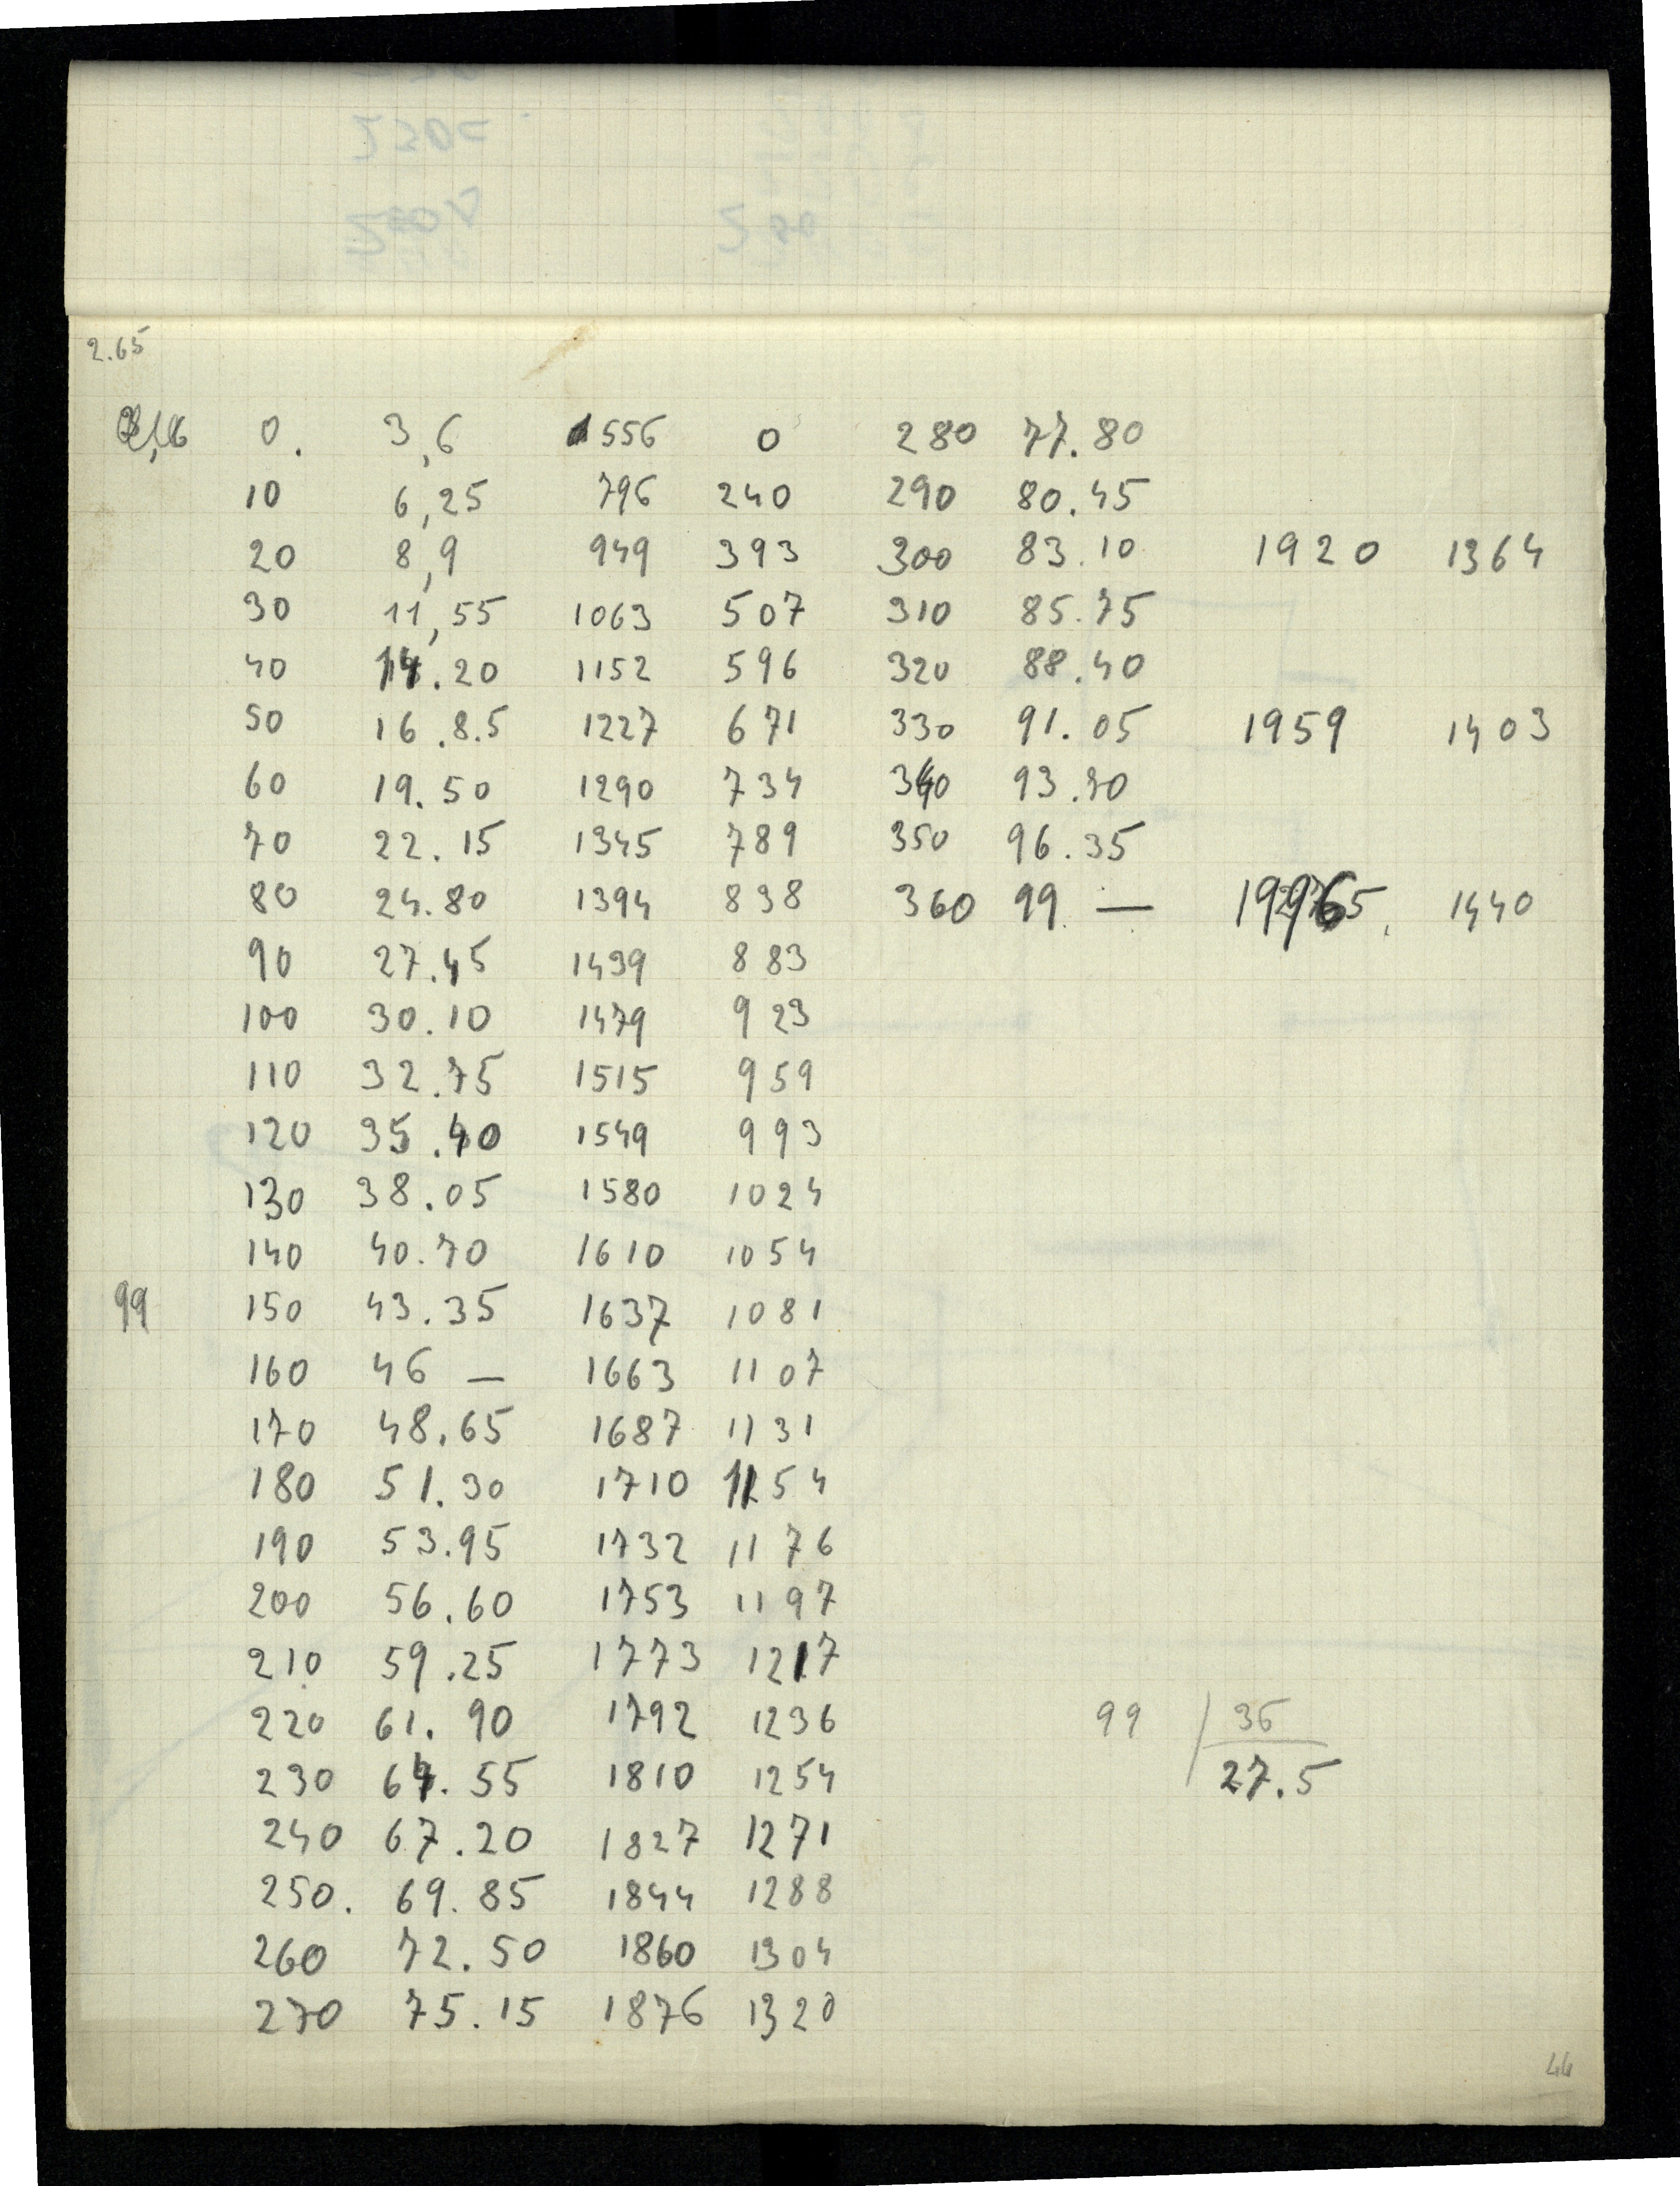 2.65
0. 3,6 556 0 280 77.80
10 6,25 796 240 290 80.45
20 8,9 949 393 300 83.10 1920 1364
30 11,55 1063 507 310 85.75
40 14.20 1152 596 320 88.40
50 16.8.5 1227 671 330 91.05 1959 1403
60 19.50 1290 734 340 93.70
70 22.15 1345 789 350 96.35
80 24.80 1394 838 360 99 — 1440
90 27.45 1439 883
100 30.10 1479 923
110 32.75 1515 959
120 35.40 1549 993
130 38.05 1580 1024
140 40.70 1610 1054
99 150 43.35 1637 1081
160 46 — 1663 1107
170 48.65 1687 1131
180 51.30 1710 1154
190 53.95 1732 1176
200 56.60 1753 1197
210 59.25 1773 1217
220 61.90 1792 1236 99 36
230 64.55 1810 1254 27.5
240 67.20 1827 1271
250. 69.85 1844 1288
260 72.50 1860 1304
270 75.15 1876 1320
44